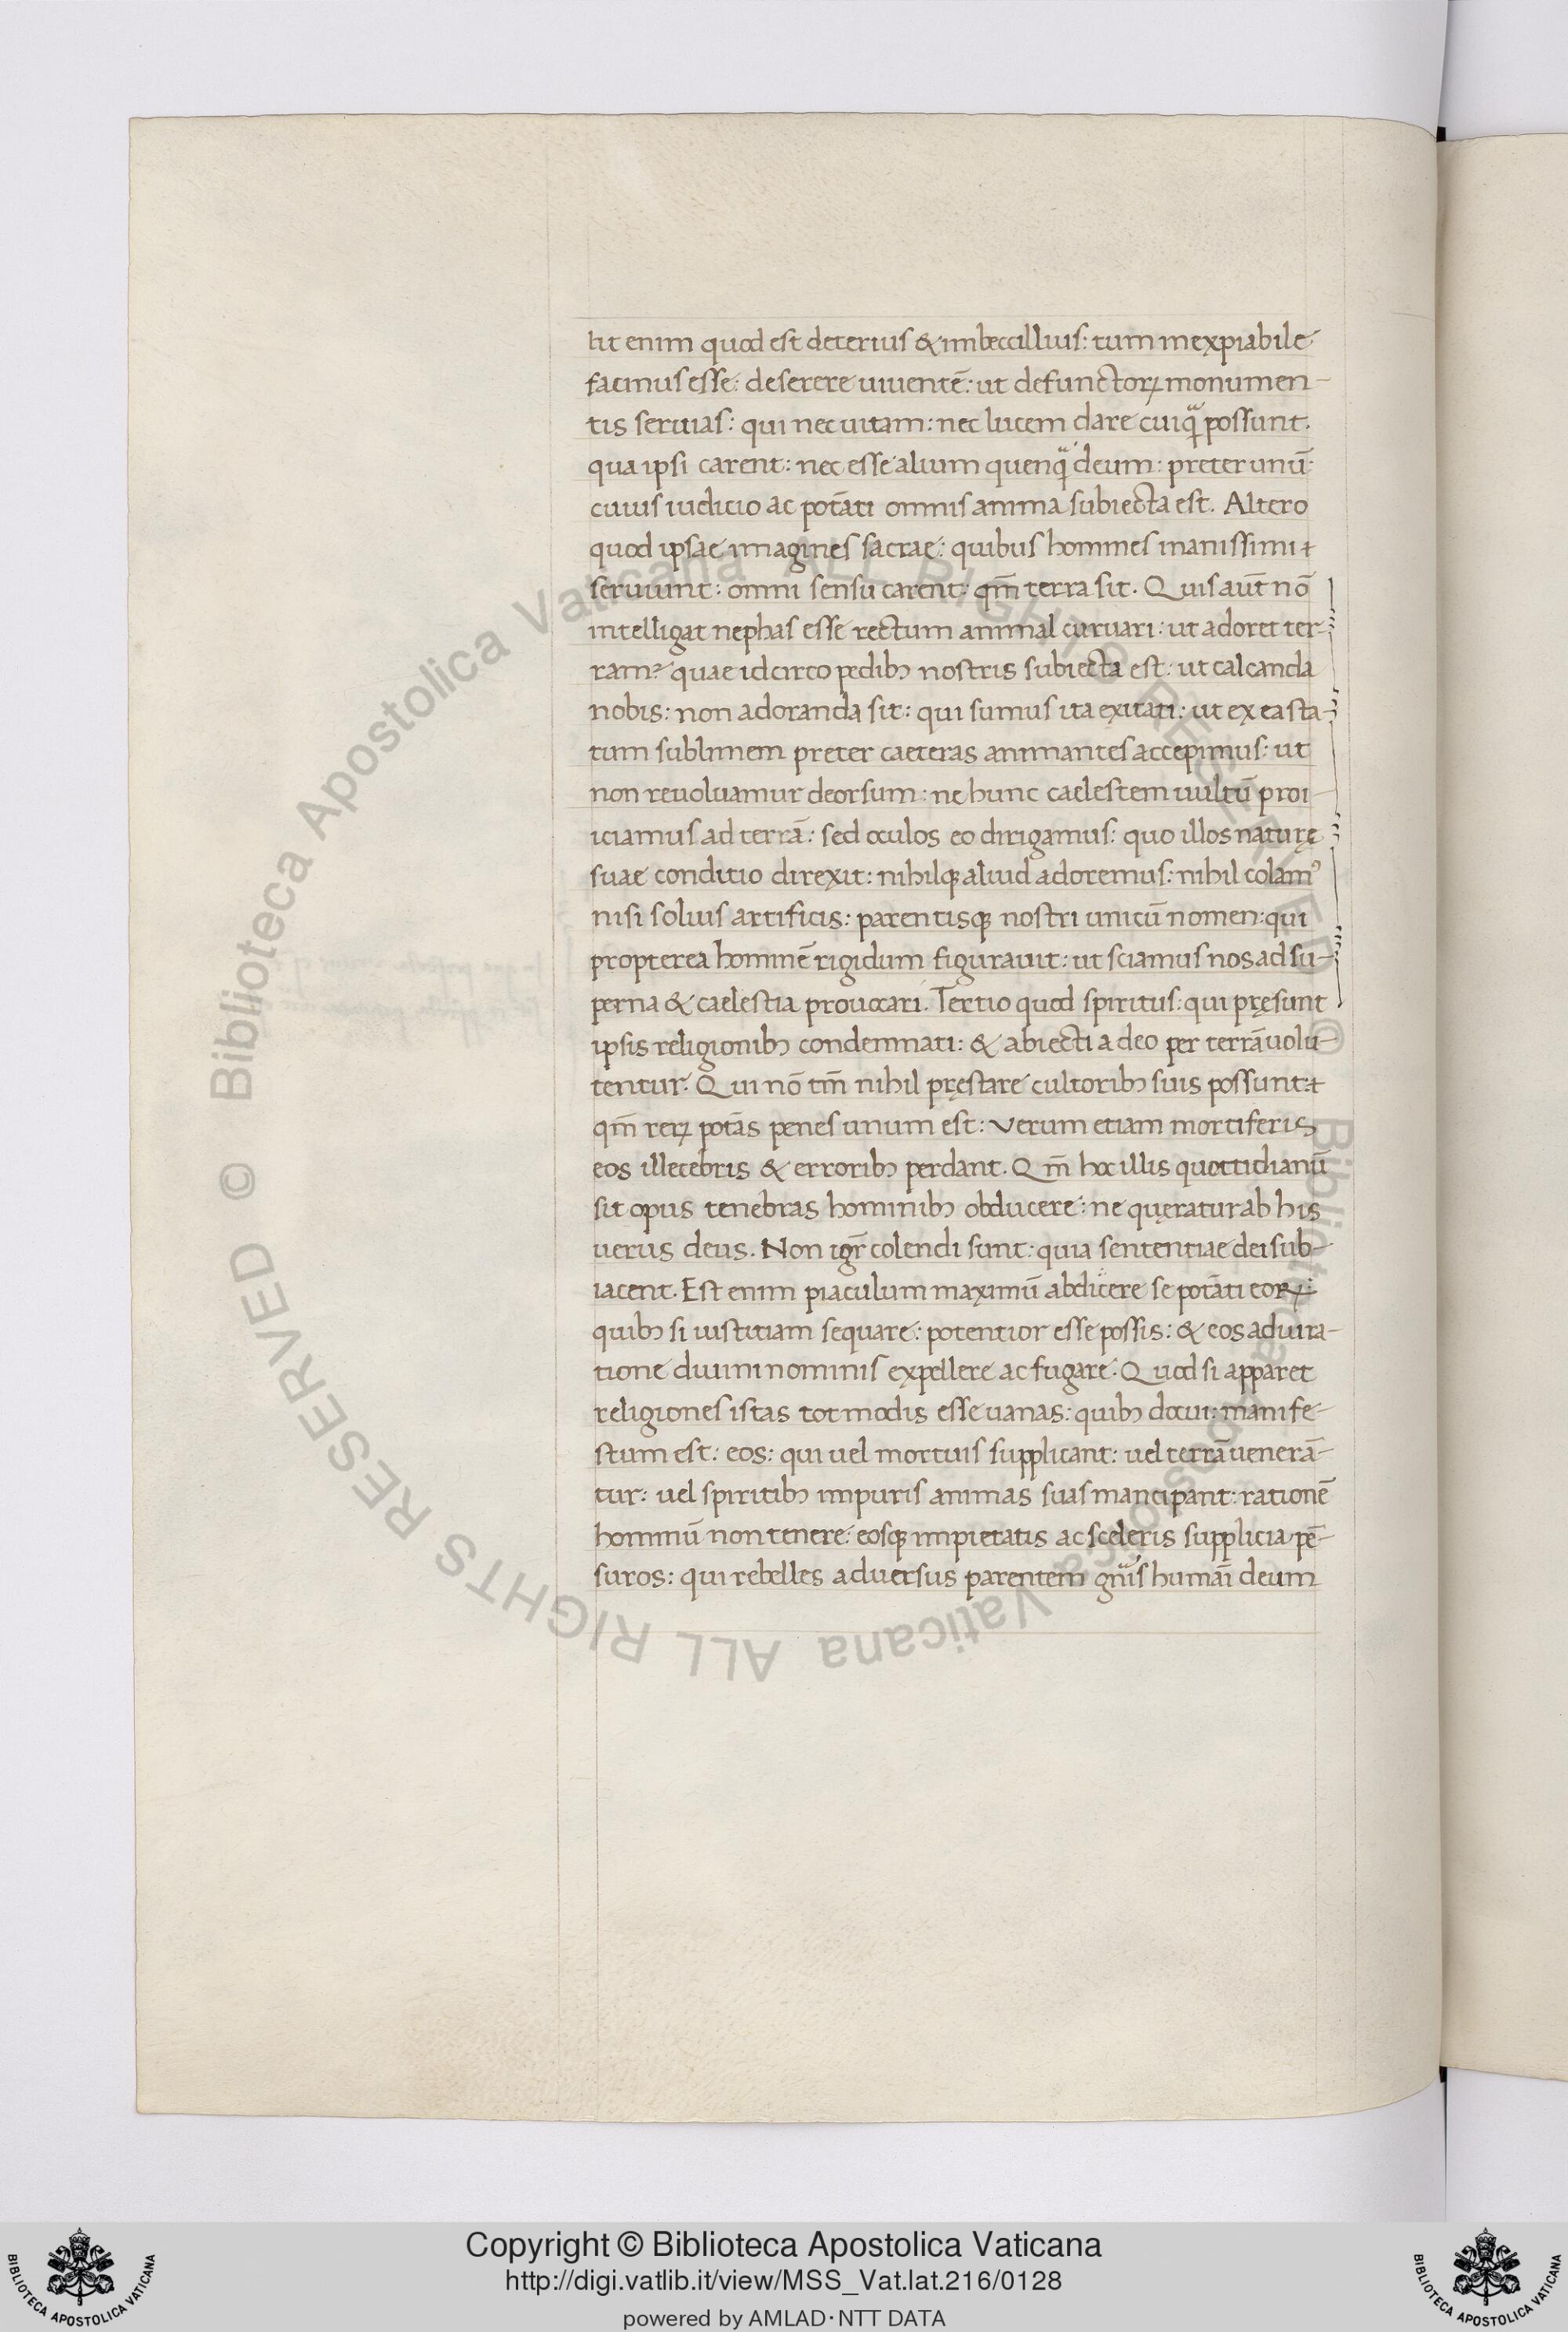 lit enim quod est deterius & imbeccillius: tum inexpiabile
facinus esse: deserere uiuentē: ut defunctoꝝ monumen-
tis seruias: qui nec uitam: nec lucem dare cuiqᷓ possunt.
qua ipsi carent: nec esse alium quenqᷓ deum: preter unū:
cuius iudicio ac potāti omnis anima subiecta est. Altero
quod ipsae imagines sacrae: quibus homines inanissimi
seruiunt: omni sensu carent: qm̄ terra sit. Quis aūt nō
intelligat nephas esse rectum animal curuari: ut adoret ter-
ram? quae idcirco pedibꝫ nostris subiecta est: ut calcanda
nobis: non adoranda sit: qui sumus ita exitati: ut ex ea sta-
tum sublimem preter caeteras animantes accepimus: ut
non reuoluamur deorsum: ne hunc caelestem uultū proi-
iciamus ad terrā: sed oculos eo dirigamus: quo illos naturę
suae conditio direxit: nihilqꝫ aliud adoremus: nihil colamꝰ
nisi solius artificis: parentisqꝫ nostri unicū nomen: qui
propterea hominē rigidum figurauit: ut sciamus nos ad su-
perna & caelestia prouocari. Tertio quod spiritus: qui pręsunt
ipsis religionibꝫ condemnati: & abiecti a deo per terrā uolu-
tentur. Qui nō tm̄ nihil pręstare cultoribꝫ suis possunt:
qm̄ reꝝ potās penes unum est: uerum etiam mortiferis
eos illecebris & erroribꝫ perdant. Qm̄ hoc illis quottidianū
sit opus tenebras hominibꝫ obducere: ne quęratur ab his
uerus deus. Non igr̄ colendi sunt: quia sententiae dei sub-
iacent. Est enim piaculum maximū abdicere se potāti eoꝝ:
quibꝫ si iustitiam sequare: potentior esse possis: & eos adiura-
tione diuini nominis expellere ac fugare. Quod si apparet
religiones istas tot modis esse uanas: quibꝫ docui: manife-
stum est: eos: qui uel mortuis supplicant: uel terrā uenerā-
tur: uel spiritibꝫ impuris animas suas mancipant: rationē
hominū non tenere: eosqꝫ impietatis ac sceleris supplicia pē-
suros: qui rebelles aduersus parentem gn̄is humāi deum
© Biblioteca Apostolica Vaticana ALL RIGHTS RESERVED © Biblioteca Apostolica Vaticana ALL RIGHTS RESERVED
Copyright © Biblioteca Apostolica Vaticana
http://digi.vatlib.it/view/MSS_Vat.lat.216/0128
powered by AMLAD·NTT DATA
BIBLIOTECA APOSTOLICA VATICANA
BIBLIOTECA APOSTOLICA VATICANA